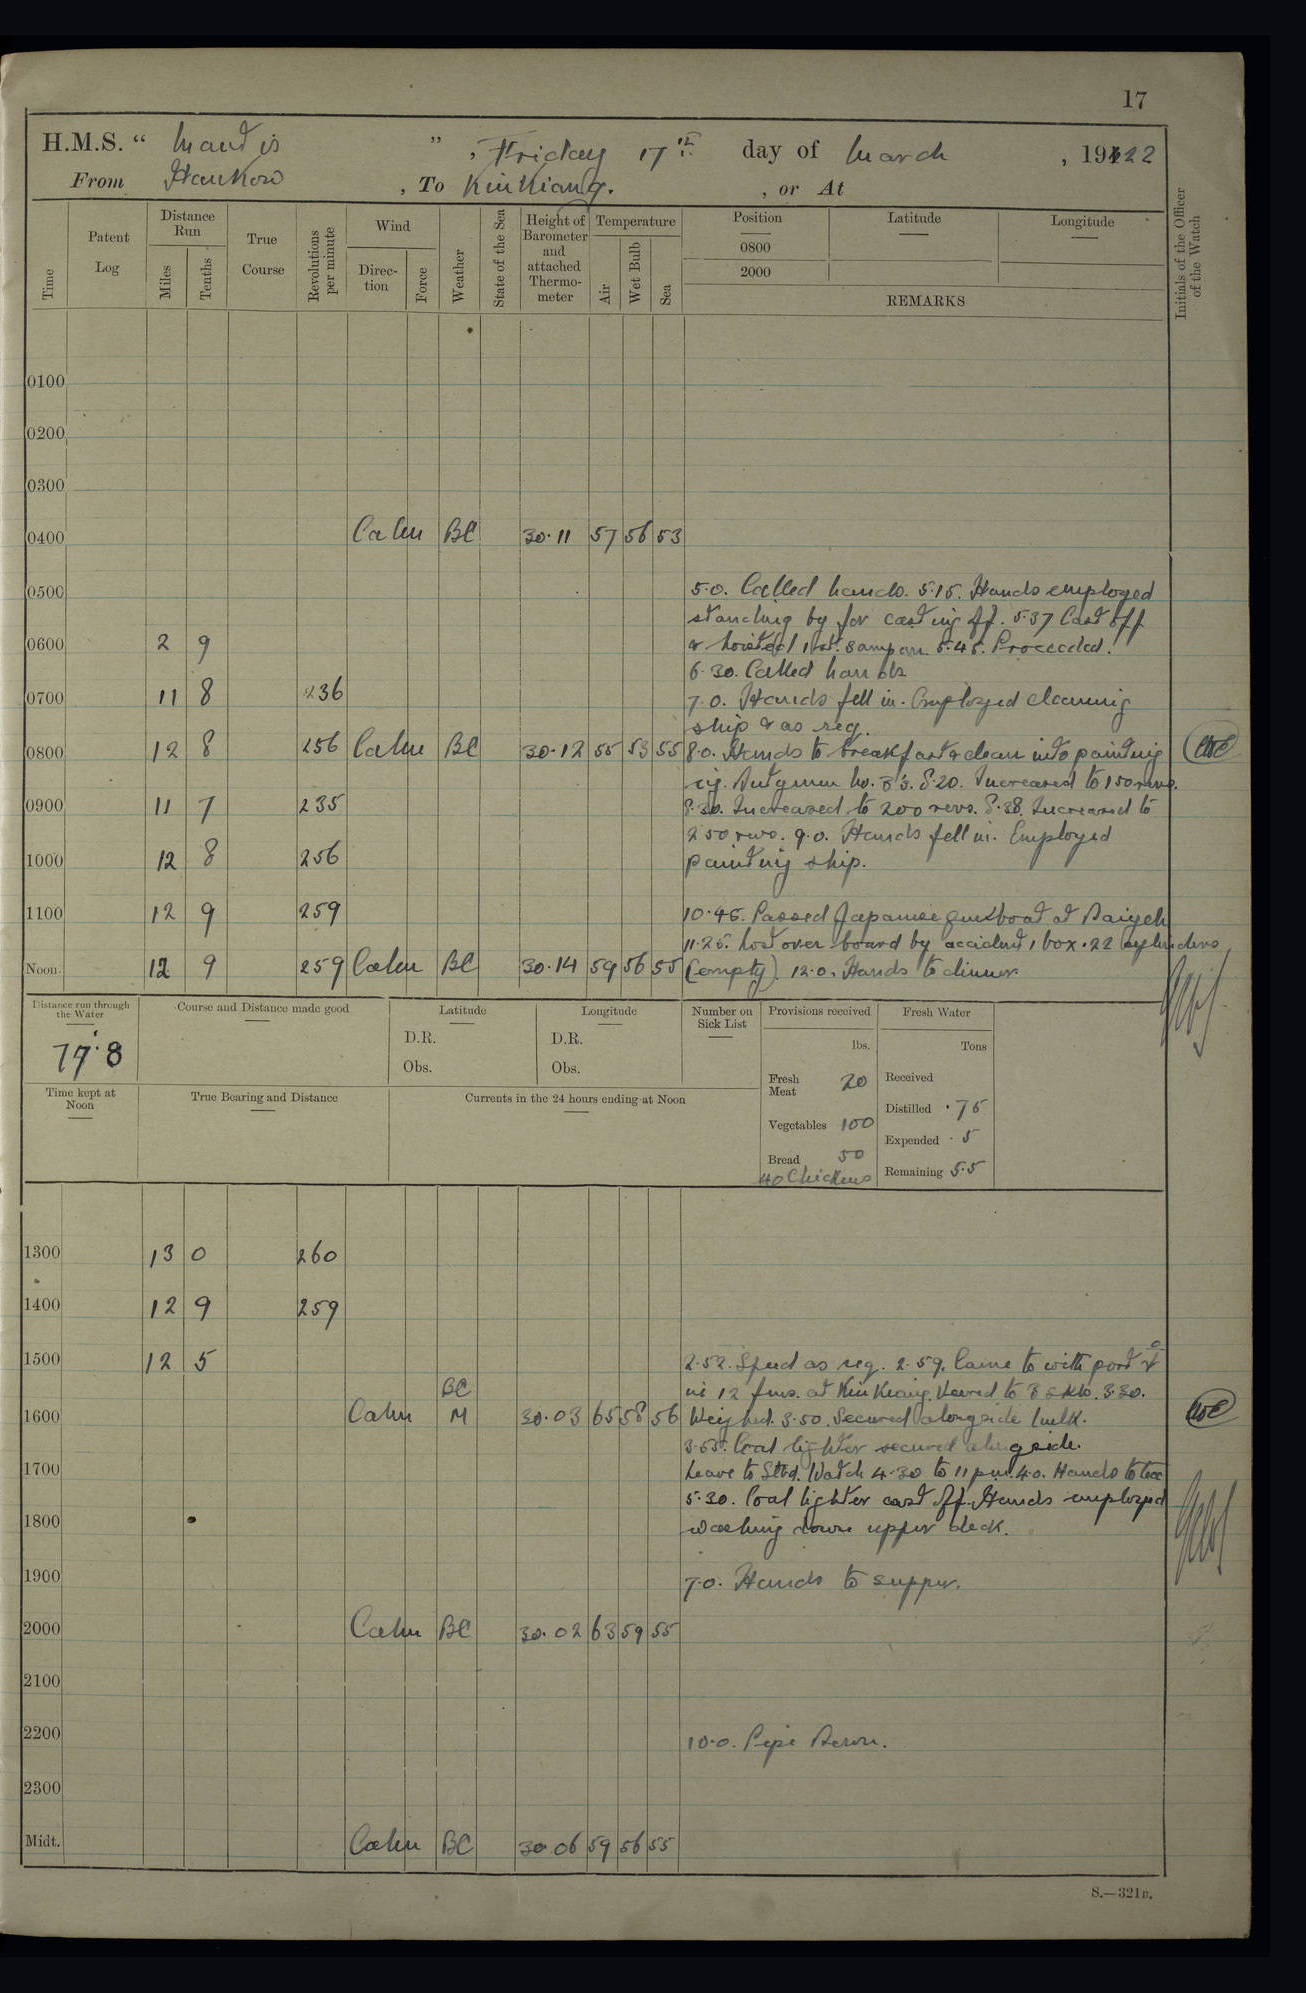 17
H.M.S. “ Mantis ” , Friday 17th day of March , 1922
From Hankow , To KiuKiang. , or At
Time
Patent Log
Distance Run
Miles
Tenths
True Course
Revolutions per minute
Wind
Direc-tion
Force
Weather
State of the Sea
Height of Barometer and attached Thermo-meter
Temperature
Air
Wet Bulb
Sea
Position
0800
2000
Latitude
Longitude
REMARKS
Initials of the Officer of the Watch
0100
0200
0300
0400 Calm BC 30·11 57 56 53
0500 5·0. Called hands. 5·15. Hands employed
standing by for casting off. 5·37 Cast off
0600 2 9 & hoisted sampan. 5·45. Proceeded.
6·30. Called hands
0700 11 8 236 7·0. Hands fell in. Employed cleaning
ship & as req.
0800 12 8 256 Calm BC 30·12 55 53 55 8·0. Hands to breakfast & clean into painting
rig. 8·20. Increased to 150 revs.
0900 11 7 235 8·30. Increased to 200 revs. 8·38. Increased to
250 revs. 9·0. Hands fell in. Employed
1000 12 8 256 painting ship.
1100 12 9 259 10·45. Passed Japanese gunboat at
11·25. Lost over board by accident 1 box ·22 cylinders
Noon 12 9 259 Calm BC 30·14 59 56 55 (empty). 12·0. Hands to dinner
Distance run through the Water
77·8
Course and Distance made good
Latitude
D.R.
Obs.
Longitude
D.R.
Obs.
Number on Sick List
Provisions received
lbs.
Fresh Meat 20
Vegetables 100
Bread 50
40 Chickens
Fresh Water
Tons
Received
Distilled ·75
Expended ·5
Remaining 5·5
Time kept at Noon
True Bearing and Distance
Currents in the 24 hours ending at Noon
1300 13 0 260
1400 12 9 259
1500 12 5 2·52. Speed as req. 2·59. Came to with port
BC in 12 fms. at KiuKiang. Veered to 3 3·30.
1600 Calm M 30·03 65 58 56 Weighed. 3·50. Secured alongside hulk.
3·55. Coal lighter secured alongside.
1700 Leave to Stbd. Watch 4·30 to 11 pm. 4·0. Hands to tea
5·30. Coal lighter cast off. Hands employed
1800 washing down upper deck.
1900 7·0. Hands to supper.
2000 Calm BC 30·02 63 59 55
2100
2200 10·0. Pipe Down.
2300
Midt. Calm BC 30·06 59 56 55
S.—321B.